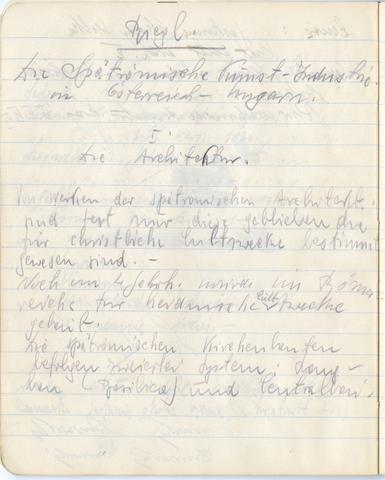 Riegl
Die Spätrömische Kunst-Industrie
in Österreich-Ungarn.
I.
Die Architektur.
Von werken der spätrömischen Architekt.
sind fast nur diese geblieben die
für christliche kultzwecke bestimmt
gewesen sind. –
Noch im 4 Jahrh. wurde im Römer
reiche für heidnische kult zwecke
gebaut.
Die spätrömischen Kirchenbauten
befolgen zweierlei system: Lang-
bau (Basilica) und Centralbau.